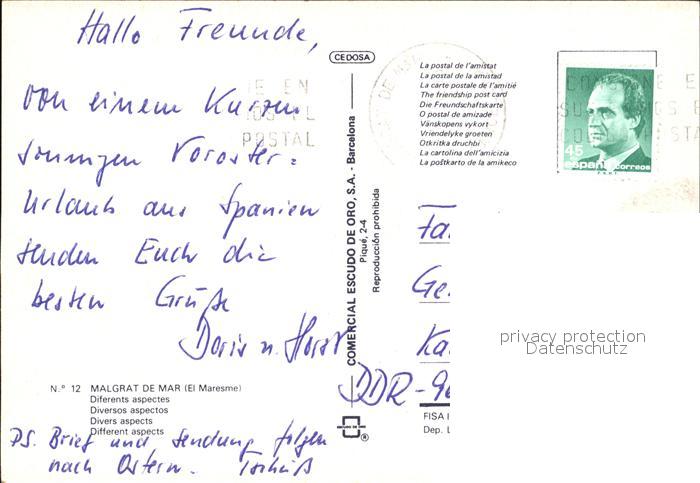 Hallo Freunde,
von einem kurzen
sonnigen Voroster=
urlaub aus Spanien
senden Euch die
besten Grüße
Doris u. Horst
N.º 12 MALGRAT DE MAR (El Maresme)
Diferents aspectes
Diversos aspectos
Divers aspects
Different aspects
PS. Brief und Sendung folgen
nach Ostern. Tschüß
CEDOSA
COMERCIAL ESCUDO DE ORO, S.A. - Barcelona
Piqué, 2-4
Reproducción prohibida
®
La postal de l'amistat
La postal de la amistad
La carte postale de l'amitié
The friendship post card
Die Freundschaftskarte
O postal de amizade
Vänskopens vykort
Vriendelyke groeten
Otkritka druchbi
La cartolina dell'amicizia
La poŝtkarto de la amikeco
45
españa correos
POSTAL
Fa.
Ge.
Ka.
DDR-9
FISA
Dep. L
privacy protection
Datenschutz